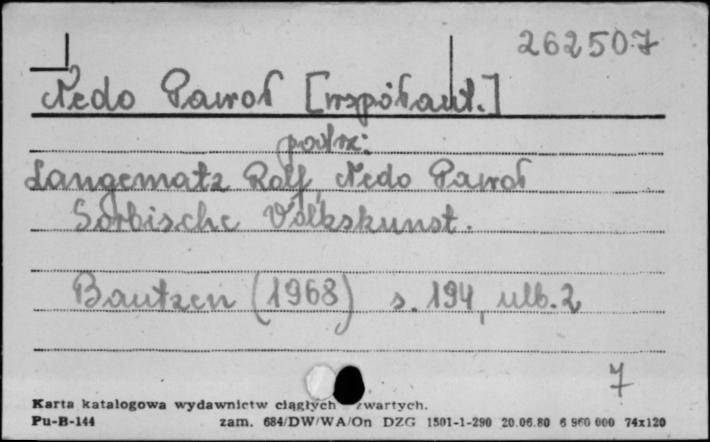 262507
Nedo Pawoł [współaut.]
patrz:
Langematz Rolf, Nedo Pawoł
Sorbische Volkskunst.
Bautzen (1968) s. 194, ulb. 2
7
Karta katalogowa wydawnictw ciągłych zwartych.
Pu-B-144 zam. 684/DW/WA/On DZG 1501-1-290 20.06.80 6 960 000 74x120